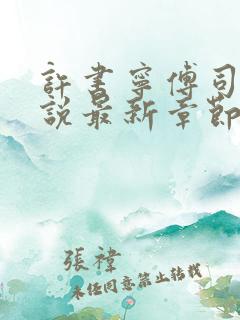 許書寧傅司
說最新章節
張禕
未經同意禁止轉載